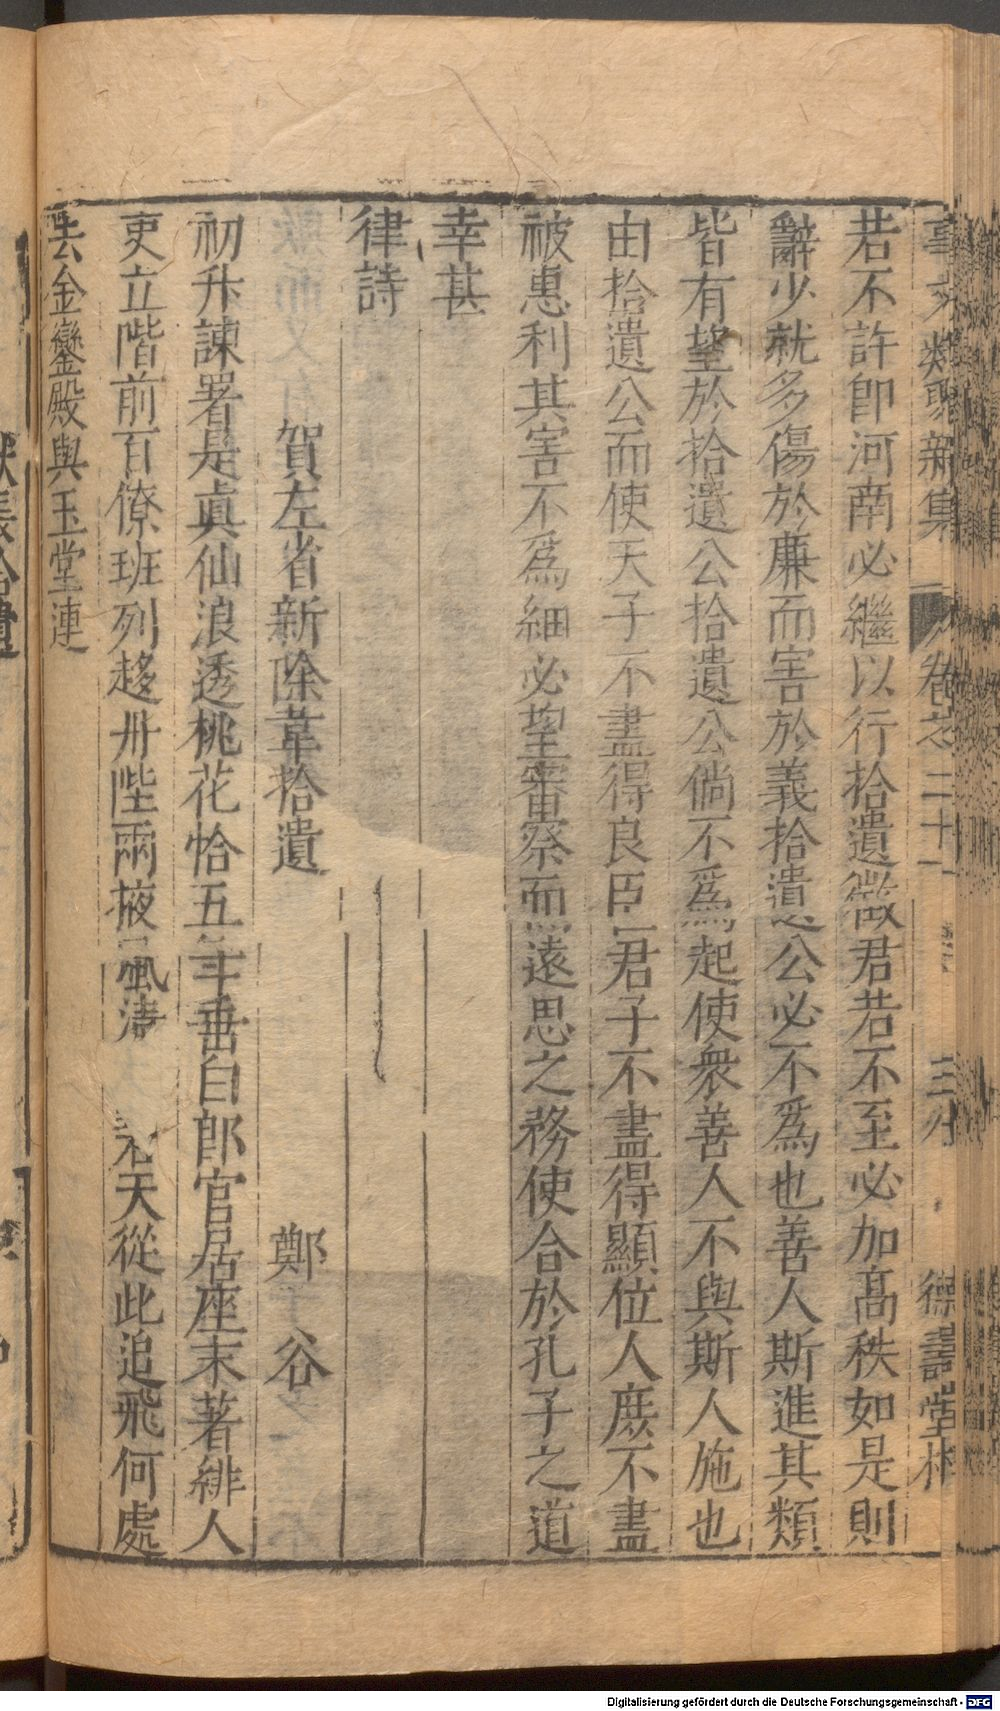 事文類聚新集 卷之二十一 德壽堂梓
若不許即河南必繼以行拾遺徵君若不至必加高秩如是則
辭少就多傷於廉而害於義拾遺公必不爲也善人斯進其類
皆有望於拾遺公拾遺公倘不爲起使衆善人不與斯人施也
由拾遺公而使天子不盡得良臣君子不盡得顯位人庶不盡
被惠利其害不爲細必望審察而遠思之務使合於孔子之道
幸甚
律詩
賀左省新除韋拾遺 鄭谷
初升諫署是眞仙浪透桃花恰五年垂白郎官居座末著緋人
吏立階前百僚班列趍丹陛兩掖風清 天從此追飛何處
去金鑾殿與玉堂連
Digitalisierung gefördert durch die Deutsche Forschungsgemeinschaft - DFG